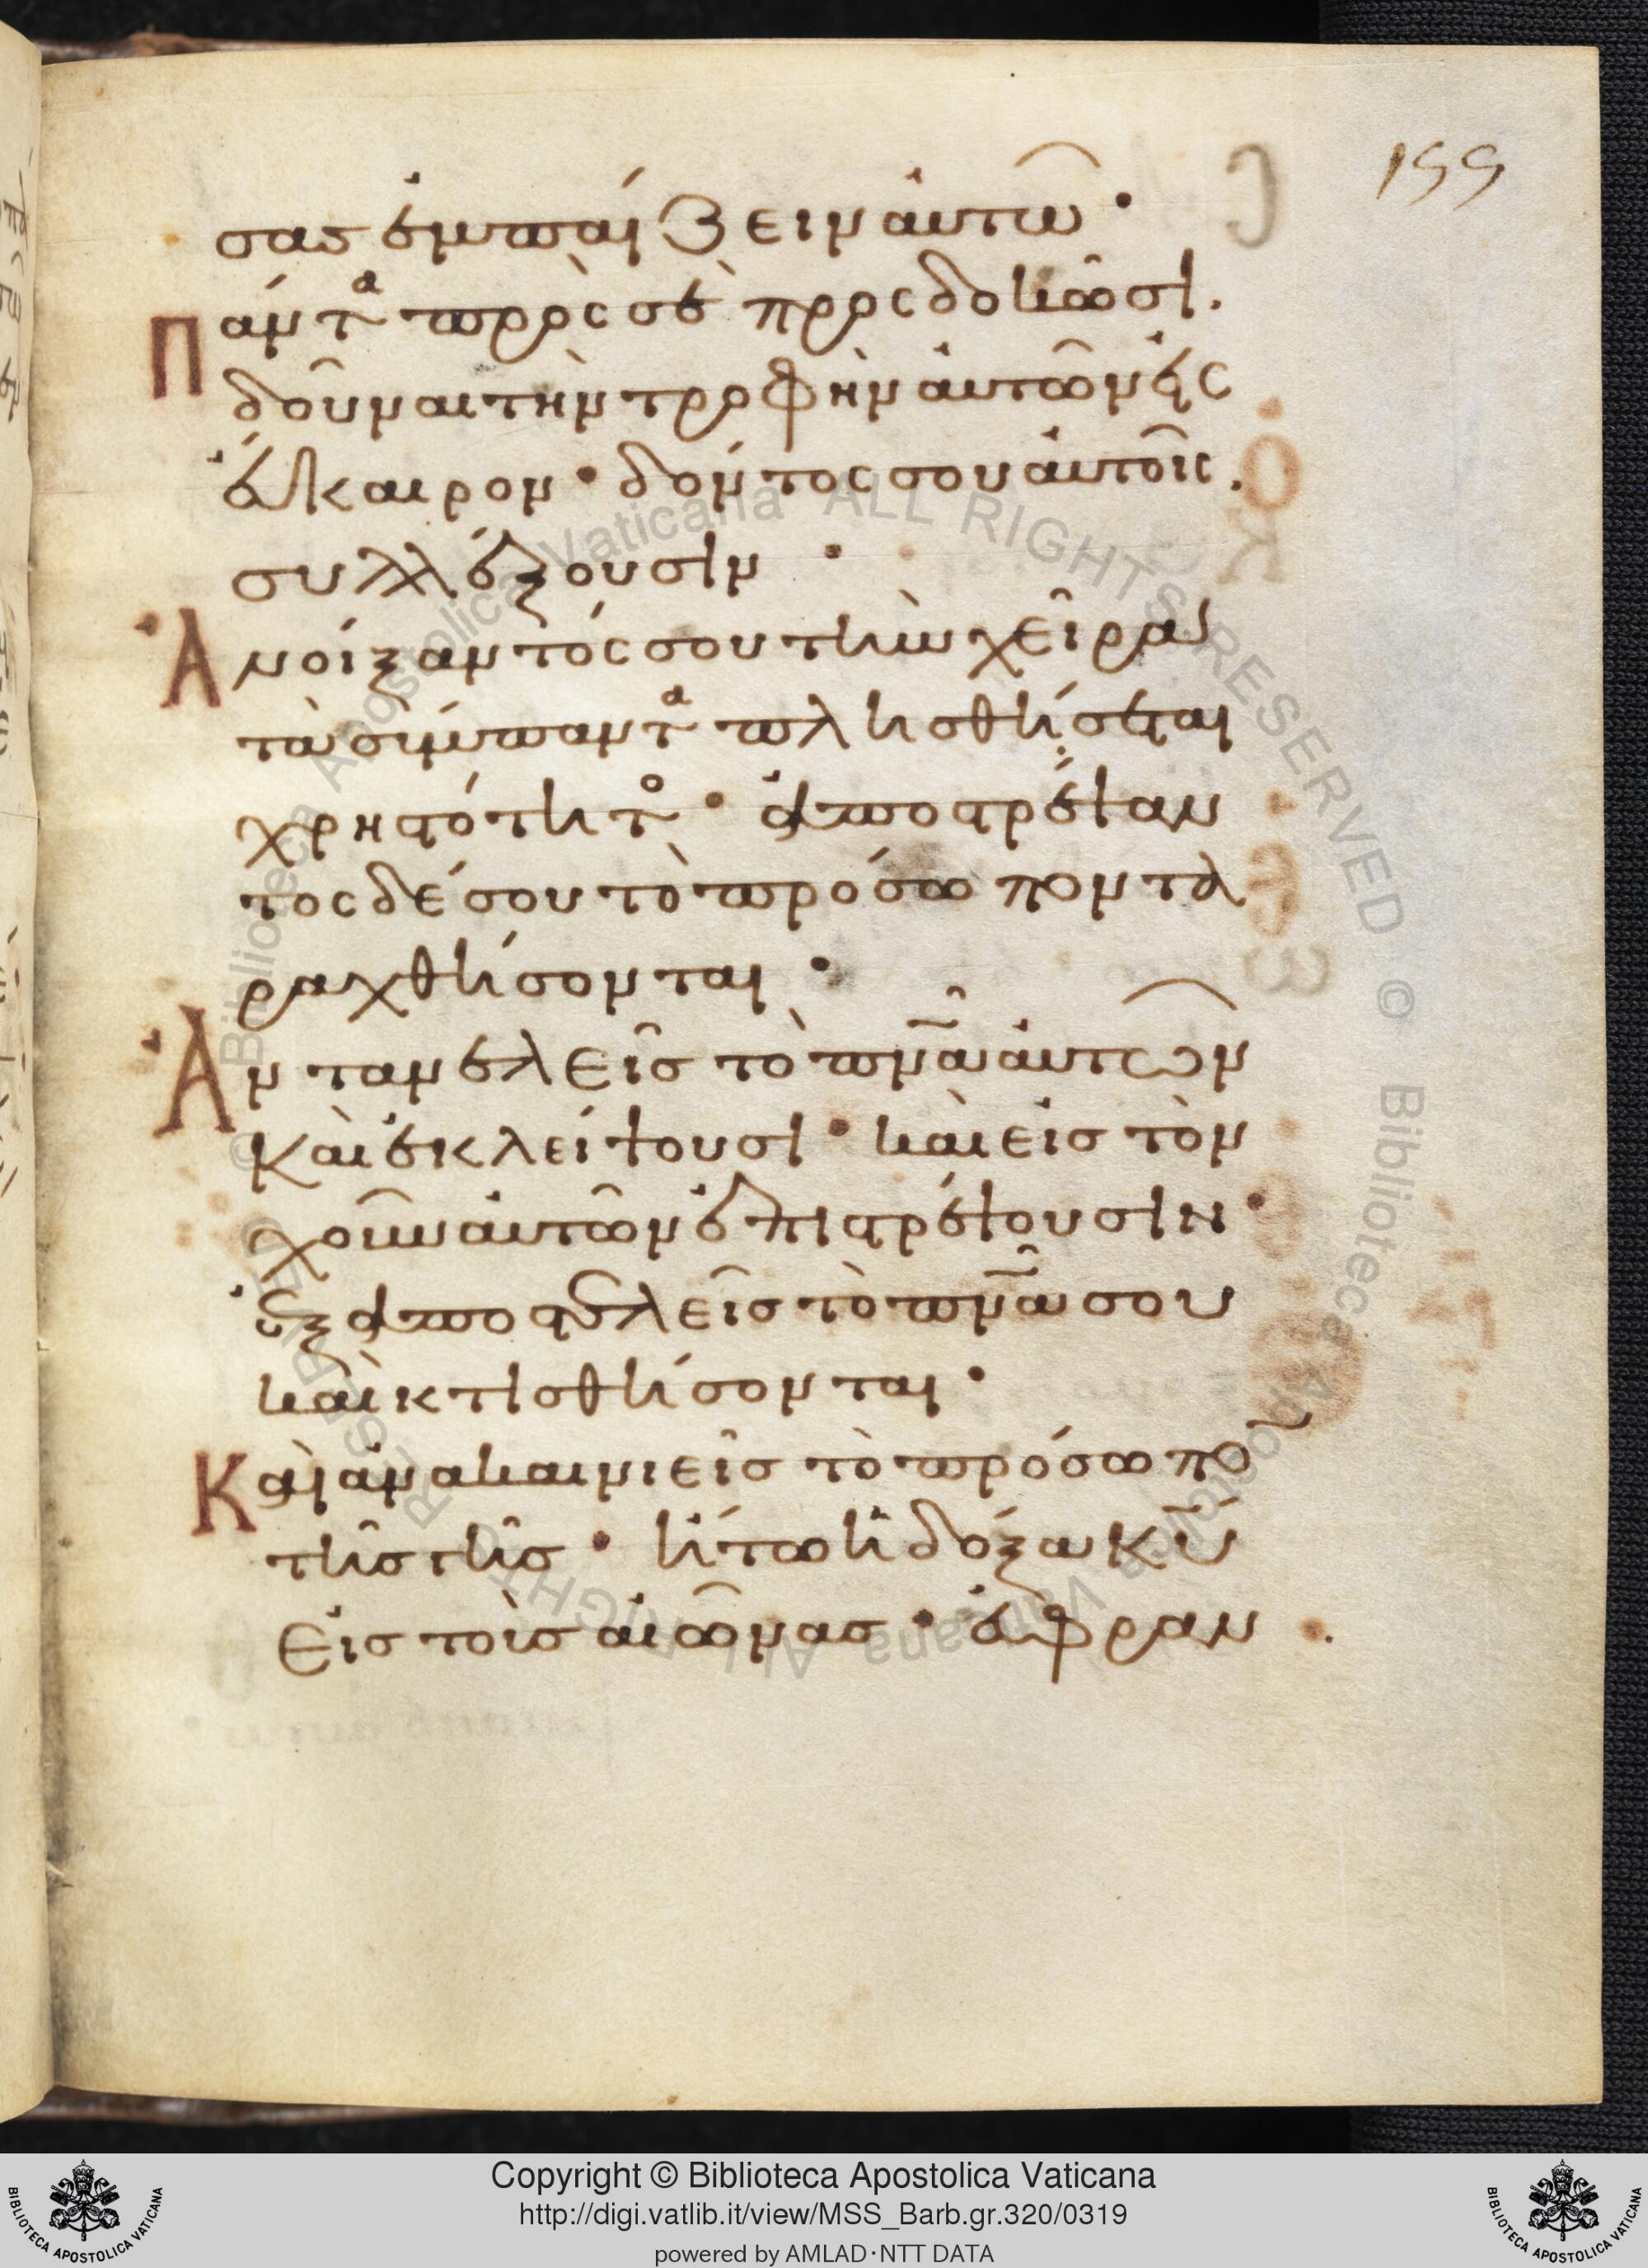 155
σας ἐμπαίζειν αὐτῶ·
Πάντα πρὸς σὲ προσδοκῶσι.
δοῦναι τὴν τροφὴν αὐτῶν εἰς
εὔκαιρον· δόντος σου αὐτοῖς.
συλλέξουσιν·
Ἀνοίξαντός σου τὴν χεῖρα
τὰ σύμπαντα πλησθήσεται
χρηστότητο· ἀποστρέψαν
τος δέ σου τὸ πρόσωπον τα
ραχθήσονται·
Ἀντανελεῖς τὸ πν̅α αὐτῶν
καὶ ἐκλείψουσι· καὶ εἰς τὸν
χοῦν αὐτῶν ἐπιστρέψουσιν·
ἐξαποστελεῖς τὸ πν̅α σου
καὶ κτισθήσονται·
Καὶ ἀνακαινιεῖς τὸ πρόσωπο̅
τῆς γῆς· ἤτω ἡ δόξα κ̅υ
εἰς τοὺς αἰῶνας· εὐφραν
Copyright © Biblioteca Apostolica Vaticana
http://digi.vatlib.it/view/MSS_Barb.gr.320/0319
powered by AMLAD·NTT DATA
BIBLIOTECA APOSTOLICA VATICANA
BIBLIOTECA APOSTOLICA VATICANA
© Biblioteca Apostolica Vaticana ALL RIGHTS RESERVED © Biblioteca Apostolica Vaticana ALL RIGHTS RESERVED